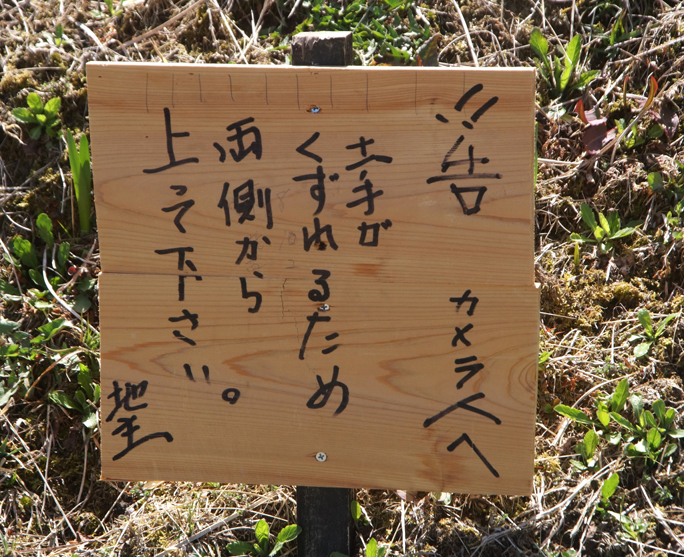 !!告 カメラ人へ
土手が
くずれるため
両側から
上って下さい。
地主